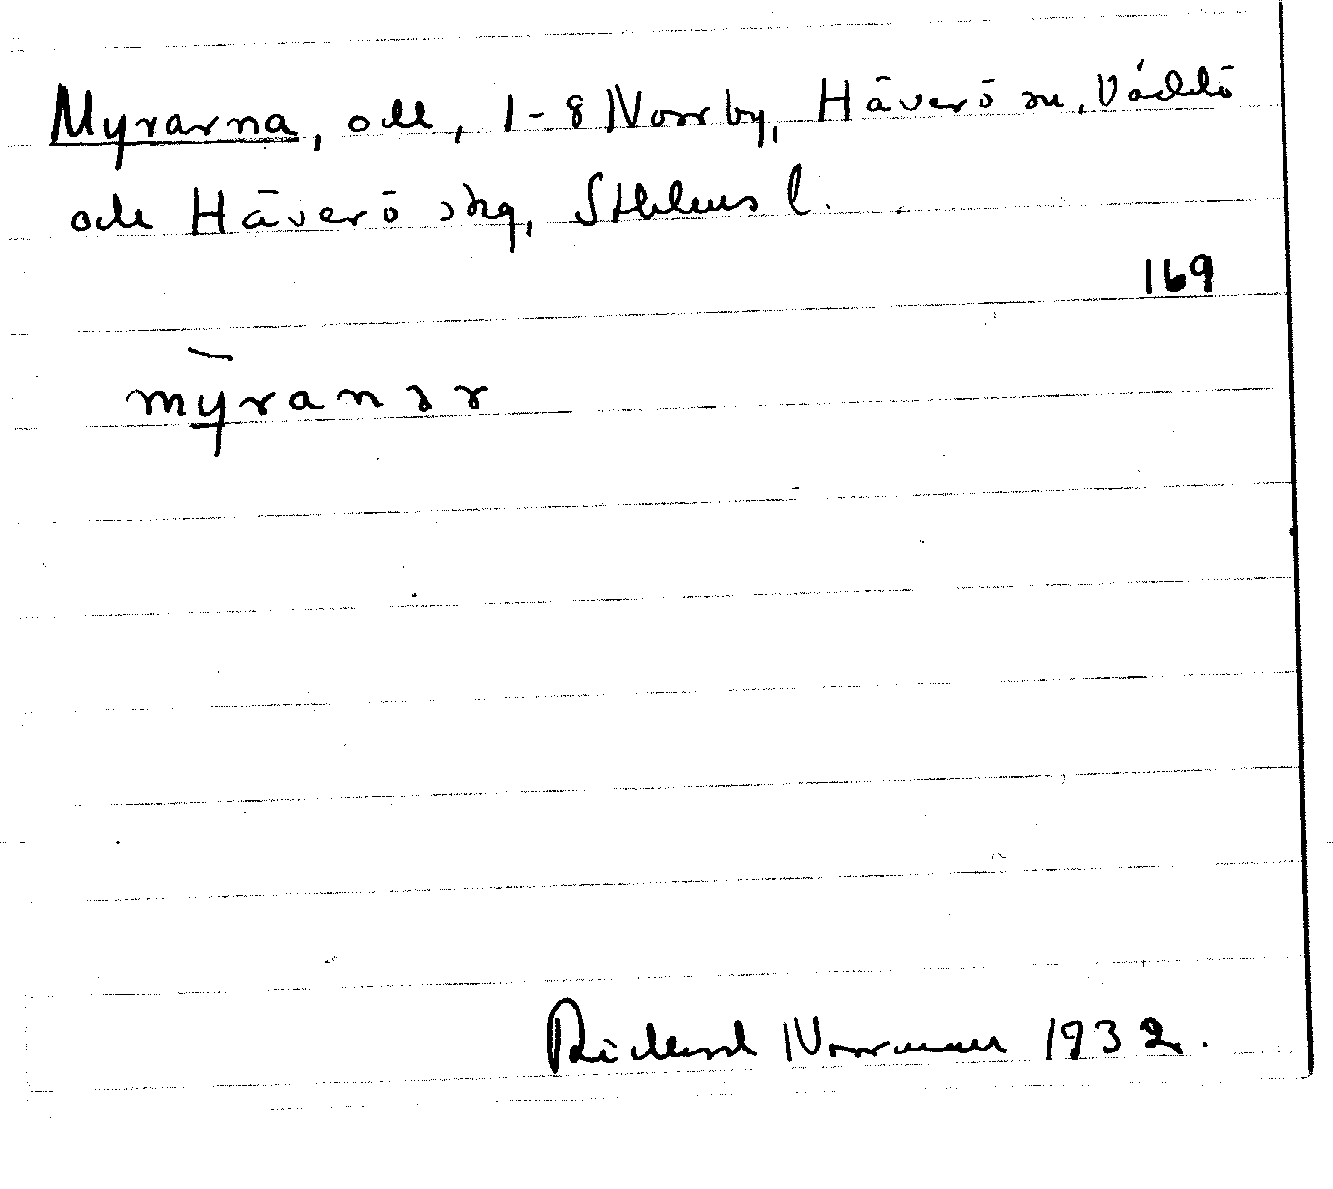 Myrarna, odl, 1-8 Norrby, Häverö sn, Väddö
och Häverö skg, Sthlms l.
169
myranar
Rickard Norrman 1932.